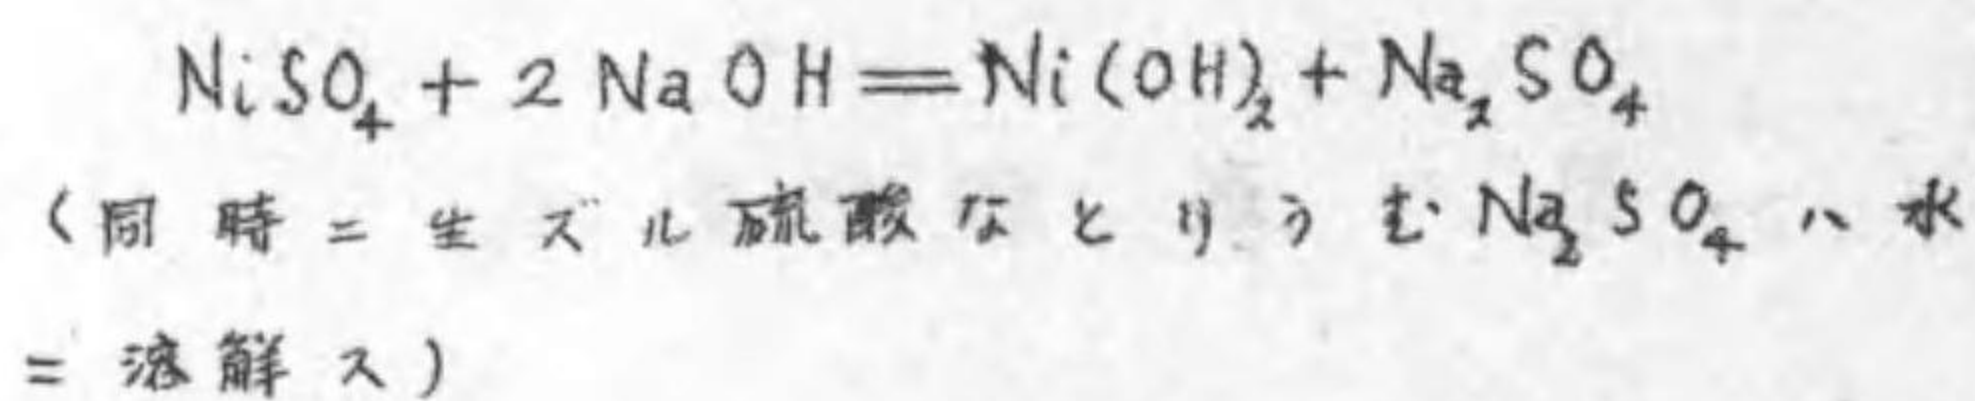 NiSO₄ + 2NaOH = Ni(OH)₂ + Na₂SO₄
(同時ニ生ズル硫酸なとりうむNa₂SO₄ハ水
ニ溶解ス)